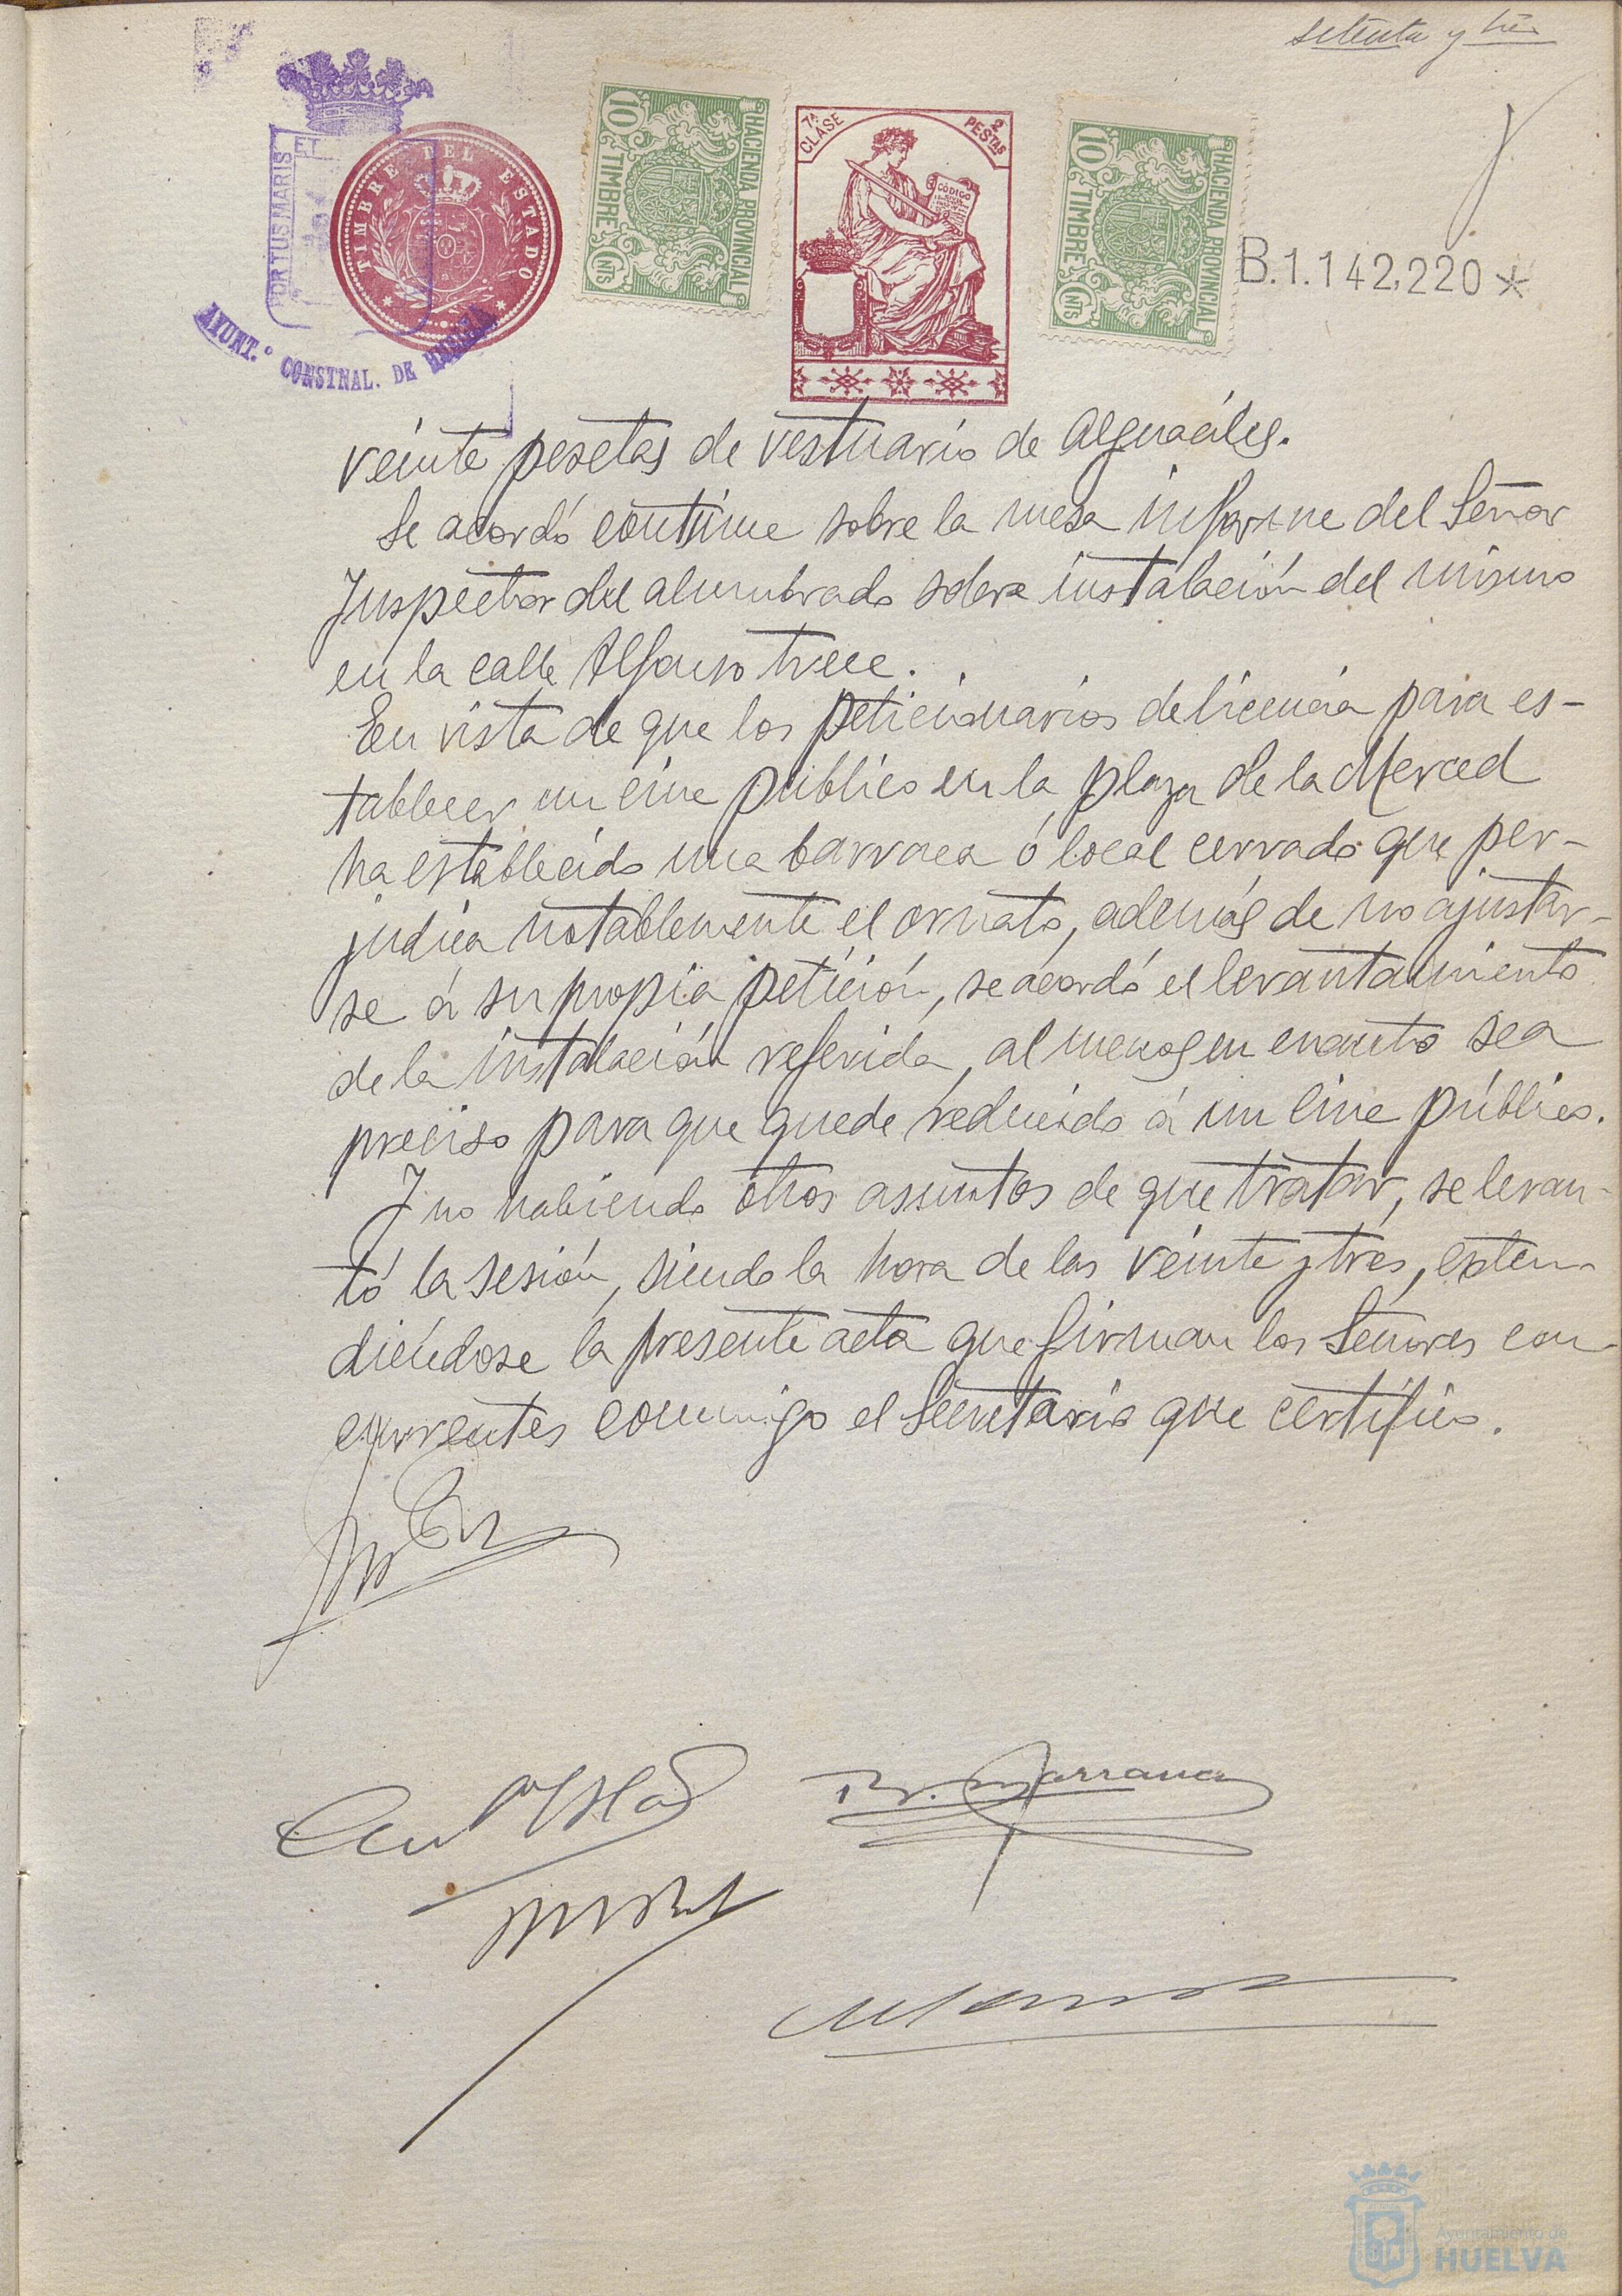 setenta y tres
PORTUS MARIS ET
AYUNT.º CONSTNAL. DE HUELVA
TIMBRE DEL ESTADO
HACIENDA PROVINCIAL
10 TIMBRE CNTS
7ª CLASE
2 PESTAS
CÓDIGO
HACIENDA PROVINCIAL
10 TIMBRE CNTS
B.1.142,220*
veinte pesetas de vestuario de Alguaciles.
Se acordó continue sobre la mesa informe del Señor
Inspector del alumbrado sobre instalación del mismo
en la calle Alfonso trece.
En vista de que los peticionarios de licencia para es-
tablecer un cine público en la plaza de la Merced
ha establecido una barraca ó local cerrado que per-
judica notablemente el ornato, además de no ajustar-
se á su propia petición, se acordó el levantamiento
de la instalación referida, al menos en cuanto sea
preciso para que quede reducido á un cine público.
Y no habiendo otros asuntos de que tratar, se levan-
tó la sesión, siendo la hora de las veinte y tres, exten-
diéndose la presente acta que firman los Señores con-
currentes conmigo el Secretario que certifico.
Ayuntamiento de
HUELVA